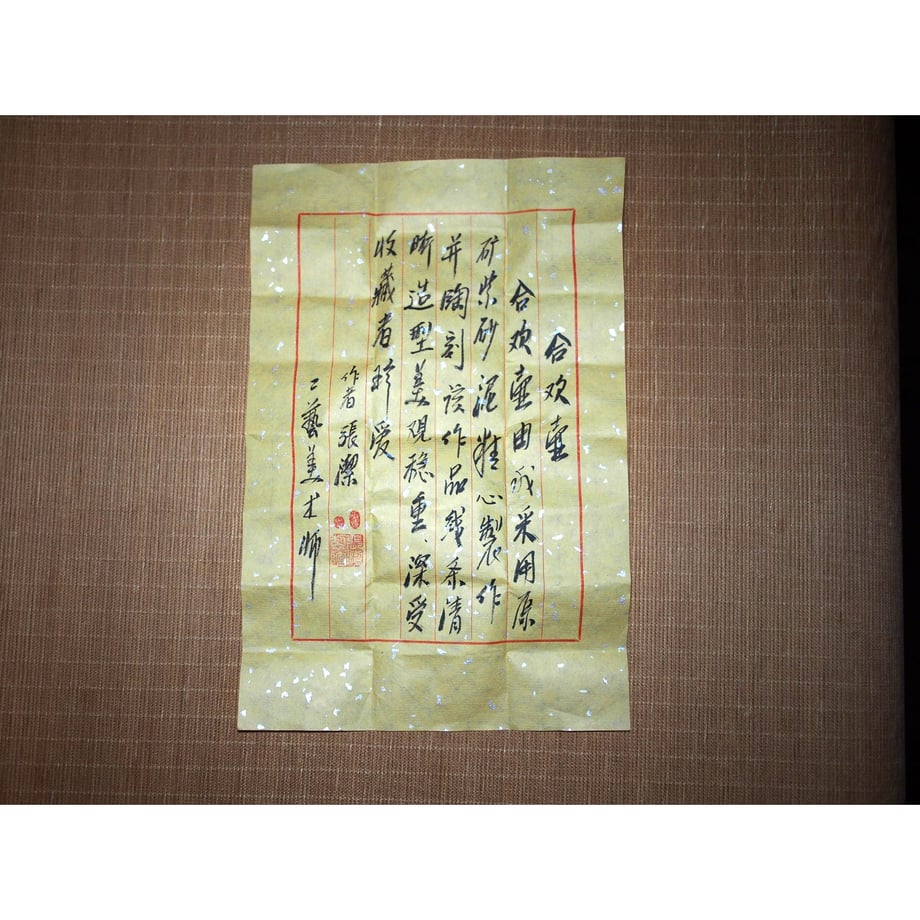 合欢壶
合欢壶由我采用原
矿紫砂泥精心製作
并陶刻该作品线条清
晰造型美观稳重、深受
收藏者珍爱
作者 張潔
工藝美术师